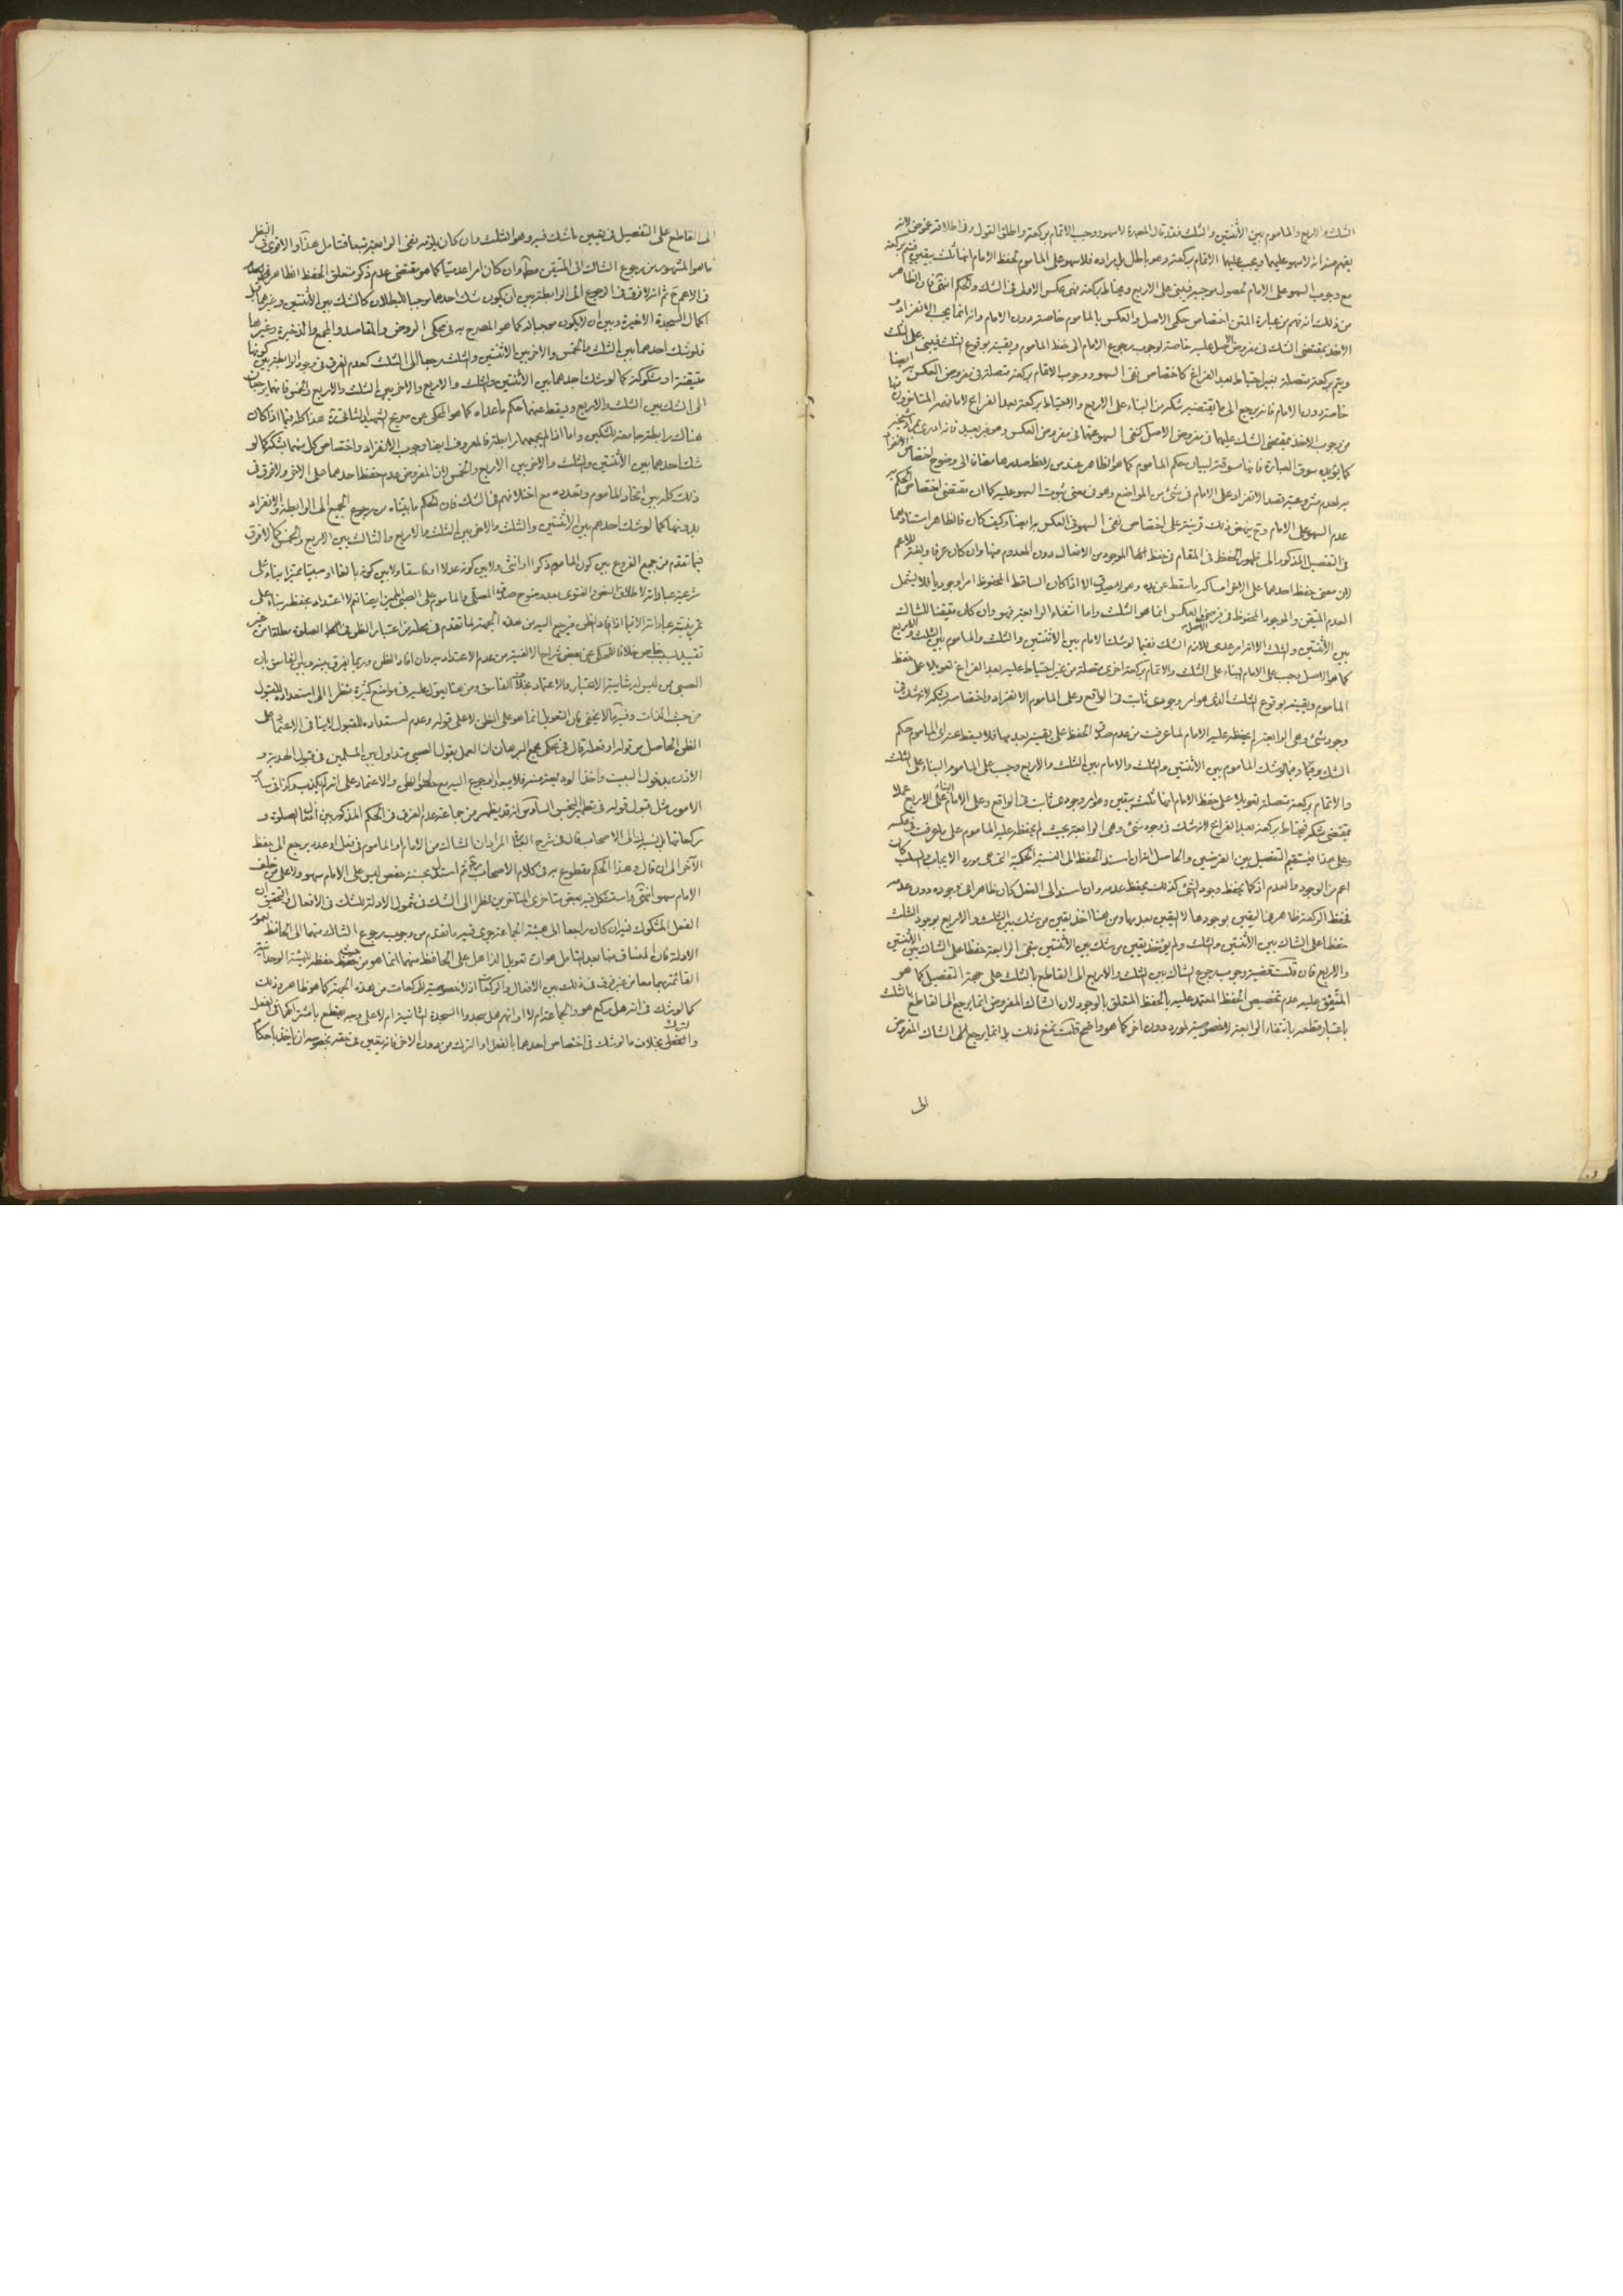 الثلث والاربع والماموم بين الاثنتين والثلث فقد قال المصدرة لا سهو ووجب الاتمام بركعة واطلاق القول وفي اطلاقه غموض لانه
يفهم منه انه لا سهو عليهما ويجب عليهما الاتمام بركعة وهو باطل بل مراده فلا سهو على الماموم لحفظ الامام انها ثلث بيقين فيتم بركعة
مع وجوب السهو على الامام لحصول موجبه فيبنى على الاربع ويحتاط بركعة نهى عكس الاولى في الشك والحكم انتهى فان الظاهر
من ذلك انه فهم من عبارة المتن اختصاص حكمى الاصل والعكس بالماموم خاصة دون الامام وانه انما يجب الانفراد
الاخذ بمقتضى الشك في مفروض الاصل عليه خاصة لوجوب رجوع الامام الى حفظ الماموم ويقينه بوقوع الثلث فيبنى على الثلث
ويتم بركعة متصلة بغير احتياط بعد الفراغ كاختصاص نفى السهو ووجوب الاتمام بركعة متصلة في مفروض العكس به ايضا
خاصة دون الامام فانه يرجع الى ما يقتضيه شكه من البناء على الاربع والاحتياط بركعة بعد الفراغ لا ما فهمه المتاخرون منها
من وجوب الاخذ بمقتضى الشك عليهما في مفروض الاصل كنفى السهو عنهما في مفروض العكس وهو غير بعيد فانه ادرى بمراد شيخه
كما يؤيده سوق العبارة فانها مسوقة لبيان حكم الماموم كما هو الظاهر عند من لاحظ صدرها مضافا الى وضوح اختصاص الانفراد
به لعدم مشروعية قصد الانفراد على الامام في شئ من المواضع وهو في معنى ثبوت السهو عليه كما ان مقتضى اختصاص الحكم به
عدم السهو على الامام وح ينهض ذلك قرينة على اختصاص نفى السهو في العكس به ايضا وكيف كان فالظاهر استنادهما
في التفصيل المذكور الى ظهور الحفظ في المقام في حفظ الموجود من الافعال دون المعدوم منها وان كان عرفا ولغة للاعم
لان معنى حفظ احدهما على الاخر امساكه ما سقط عن يده وهو لا يصدق الا اذا كان الساقط المحفوظ امرا وجوديا فلا يشمل
العدم المتيقن والموجود المحفوظ في فرض العكس انما هو الثلث واما انتفاء الرابعة فهو وان كان متيقنا للشاك
بين الاثنتين والثلث الا انه امر عدمى للازم الشك ففيما لو شك الامام بين الاثنتين والثلث والماموم بين الثلث والاربع
كما هو الاصل يجب على الامام البناء على الثلث والاتمام بركعة اخرى متصلة من غير احتياط عليه بعد الفراغ تعويلا على حفظ
الماموم ويقينه بوقوع الثلث الذى هو امر وجودى ثابت في الواقع وعلى الماموم الانفراد واختصاصه بشكه لانه شك في
وجود شئ وهى الرابعة لم يحفظه عليه الامام لما عرفت من عدم صدق الحفظ على يقينه بعدمها فلا يسقط عنه اى الماموم حكم
الشك وفيما لو شك الماموم بين الاثنتين والثلث والامام بين الثلث والاربع وجب على الماموم البناء على الثلث
والاتمام بركعة متصلة تعويلا على حفظ الامام انها ثلث بيقين وهو امر وجودى ثابت في الواقع وعلى الامام البناء على الاربع عملا
بمقتضى شكه فيحتاط بركعة بعد الفراغ لانه شك في وجود شئ وهى الرابعة بحيث لم يحفظه عليه الماموم على ما عرفت في عكسه
وعلى هذا فيستقيم التفصيل بين الفرضين والحاصل انه ان اسند الحفظ الى النسبة الحكمية التى هى مورد الايجاب والسلب كان
اعم من الوجود والعدم اذ كما يحفظ وجود الشئ كذلك يحفظ عدمه وان اسند الى الفعل كان ظاهرا في وجوده دون عدمه
فحفظ الركعة ظاهر هنا اليقين بوجودها لا اليقين بعدمها ومن هنا اخذ يقين من شك بين الثلث والاربع بوجود الثلث
حفظا على الشاك بين الاثنتين والثلث ولم يؤخذ يقين من شك بين الاثنتين بنفى الرابعة حفظا على الشاك بين الاثنتين
والاربع فان قلت قضية وجوب رجوع الشاك بين الثلث والاربع الى القاطع بالثلث على جهة التفصيل كما هو
المتفق عليه عدم تخصيص الحفظ المعتمد عليه بالحفظ المتعلق بالوجود لان الشاك المفروض انما يرجع الى القاطع بالثلث
باعتبار قطعه بانتفاء الرابعة لا لخصوصية المورد دون اخر كما هو واضح قلت نمنع ذلك بل انما يرجع الى الشاك المفروض
الى
الى القاطع على التفصيل في يقين ما شك فيه وهو الثلث وان كان يلزمه نفى الرابعة تبعا فتامل هذا والاقوى في النظر
ما هو المشهور من رجوع الشاك الى المتيقن مطلقا وان كان امرا عدميا كما هو مقتضى عدم ذكر متعلق الحفظ الظاهر
في الاعم ح ثم انه لا فرق في الرجوع الى الرابطة بين ان يكون شك احدهما موجبا للبطلان كالشك بين الاثنتين وغيرها قبل
اكمال السجدة الاخيرة وبين ان لا يكون موجبا له كما هو المصرح به في محكى الروض والمقاصد والمجمع والذخيرة وغيرها
فلو شك احدهما بين الثلث والخمس والاخر بين الاثنتين والثلث رجعا الى الثلث كعدم الفرق في وجود الرابطة بين كونها
متيقنة او مشكوكة كما لو شك احدهما بين الاثنتين والثلث والاربع والاخر بين الثلث والاربع والخمس فانهما يرجعان
الى الشك بين الثلث والاربع ويسقط عنهما حكم ما عداه كما هو المحكى عن صريح الشهيد الثانى هذا كله فيما اذا كان
هناك رابطة جامعة للشكين واما اذا لم يجمعهما رابطة فالمعروف ايضا وجوب الانفراد واختصاص كل منهما بشكه كما لو
شك احدهما بين الاثنتين والثلث والاخر بين الاربع والخمس لان المفروض عدم حفظ احدهما على الاخر ولا فرق في
ذلك كله بين اتحاد الماموم وتعدده مع اختلافهم في الشك فان الحكم ما بيناه من رجوع الجميع الى الرابطة والانفراد
بدونها كما لو شك احدهم بين الاثنتين والثلث والاخر بين الثلث والاربع والثالث بين الاربع والخمس كما لا فرق
فيما تقدم من جميع الفروع بين كون الماموم ذكرا او انثى ولا بين كونه عدلا او فاسقا ولا بين كونه بالغا او صبيا مميزا بناء على
شرعية عباداته لاطلاق النص والفتوى بعد وضوح صدق المصلى والماموم على الصبى المميز ايضا نعم لا اعتداد بحفظه بناء على
تمرينية عباداته الا فيما اذا افاد الظن فيرجع اليه من هذه الجهة لما تقدم في محله من اعتبار الظن في الصلوة مطلقا من غير
تقييد بسبب خاص خلافا للمحكى عن بعض شراح الالفية من عدم الاعتداد به وان افاد الظن وربما يفرق بينه وبين الفاسق بان
الصبى ممن ليس له شابية الاعتبار والاعتماد بخلاف الفاسق ومن هنا يعول عليه في مواضع كثيرة نظرا الى استعداده للقبول
من حيث الذات وفيه ما لا يخفى فان التعويل انما هو على الظن لا على قوله وعدم استعداده للقبول لا ينافي الاعتماد على
الظن الحاصل من قوله او فعله قال في محكى مجمع البرهان ان العمل بقول الصبى متداول بين المسلمين في قبول الهدية و
الاذن بدخول البيت واخذ الوديعة منه فلا يبعد الرجوع اليه مع حصول الظن والاعتماد على انه لم يكذب وكذا في ساير
الامور مثل قبول قوله في تطهير النجس الساذس انه قد يظهر من جماعة عدم الفرق في الحكم المذكور بين افعال الصلوة و
ركعاتها بل نسبه الى الاصحاب قال في شرح المراد ان الشاك من الامام او الماموم في فعل او عدد يرجع الى حفظ
الآخر الى ان قال وهذا الحكم مقطوع به في كلام الاصحاب ثم استدل بحسنة حفص ليس على الامام سهو ولا على من خلف
الامام سهو انتهى واستشكل فيه بعض متاخرى المتاخرين نظرا الى الشك في شمول الادلة للشك في الافعال والتحقيق ان
الفعل المشكوك فيه ان كان راجعا الى هيئة الجماعة جرى فيه ما تقدم من وجوب رجوع الشاك منهما الى الحافظ لعموم
الادلة فان المنساق منها بعد التامل هو ان تعويل الذاهل على الحافظ منهما انما هو من حيث حفظه للهيئة الوحدانية
القائمة بهما معا من غير فرق في ذلك بين الافعال والركعات اذ لا خصوصية للركعات من هذه الجهة كما هو ظاهر وذلك
كما لو شك في انه هل ركع هو والجماعة ام لا او انهم هل سجدوا السجدة الثانية ام لا على وجه يقطع باشتراكهما في الفعل
والترك بخلاف ما لو شك في اختصاص احدهما بالفعل او الترك من دون الاخر فانه يتعين في حقه بخصوصه ان ياخذ باحكام